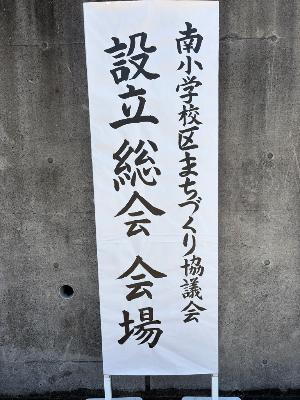 南小学校区まちづくり協議会
設立総会会場